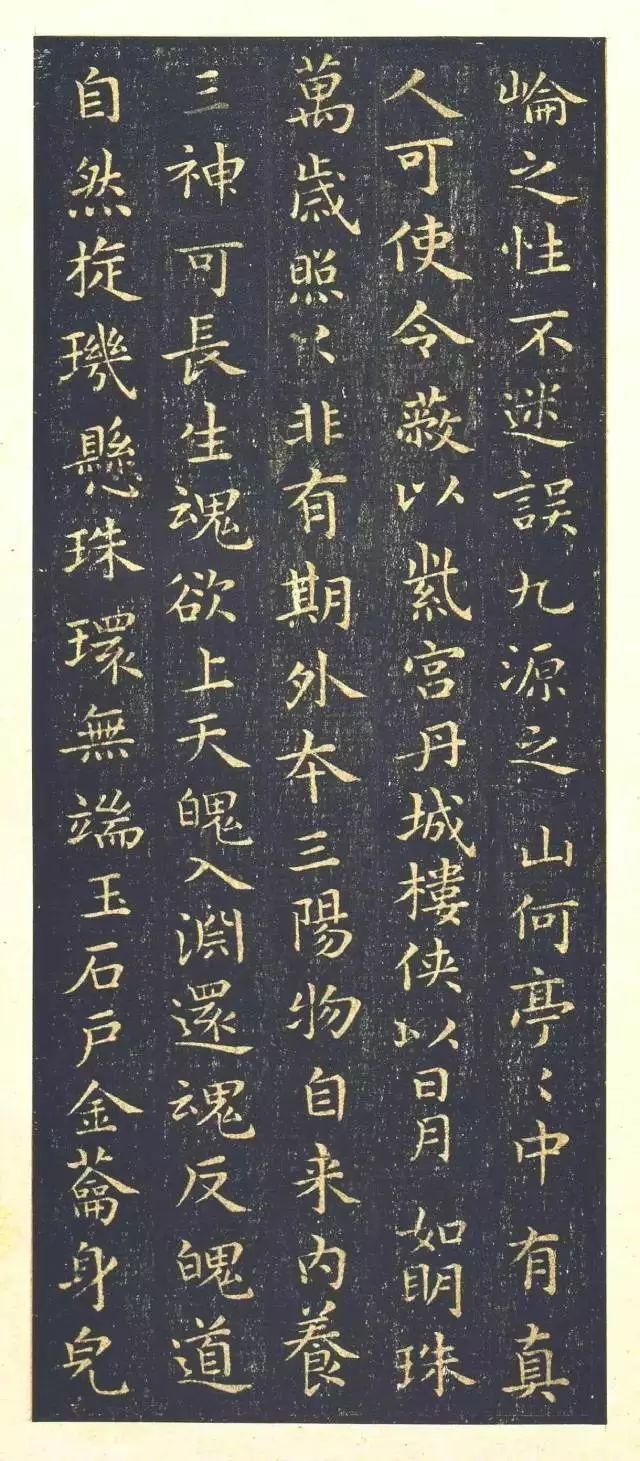 崘之性不迷誤九源之山何亭〻中有真
人可使令蔽以紫宮丹城樓俠以日月如明珠
萬歲照〻非有期外本三陽物自来内養
三神可長生魂欲上天魄入淵還魂反魄道
自然旋璣懸珠環無端玉石户金蘥身皃